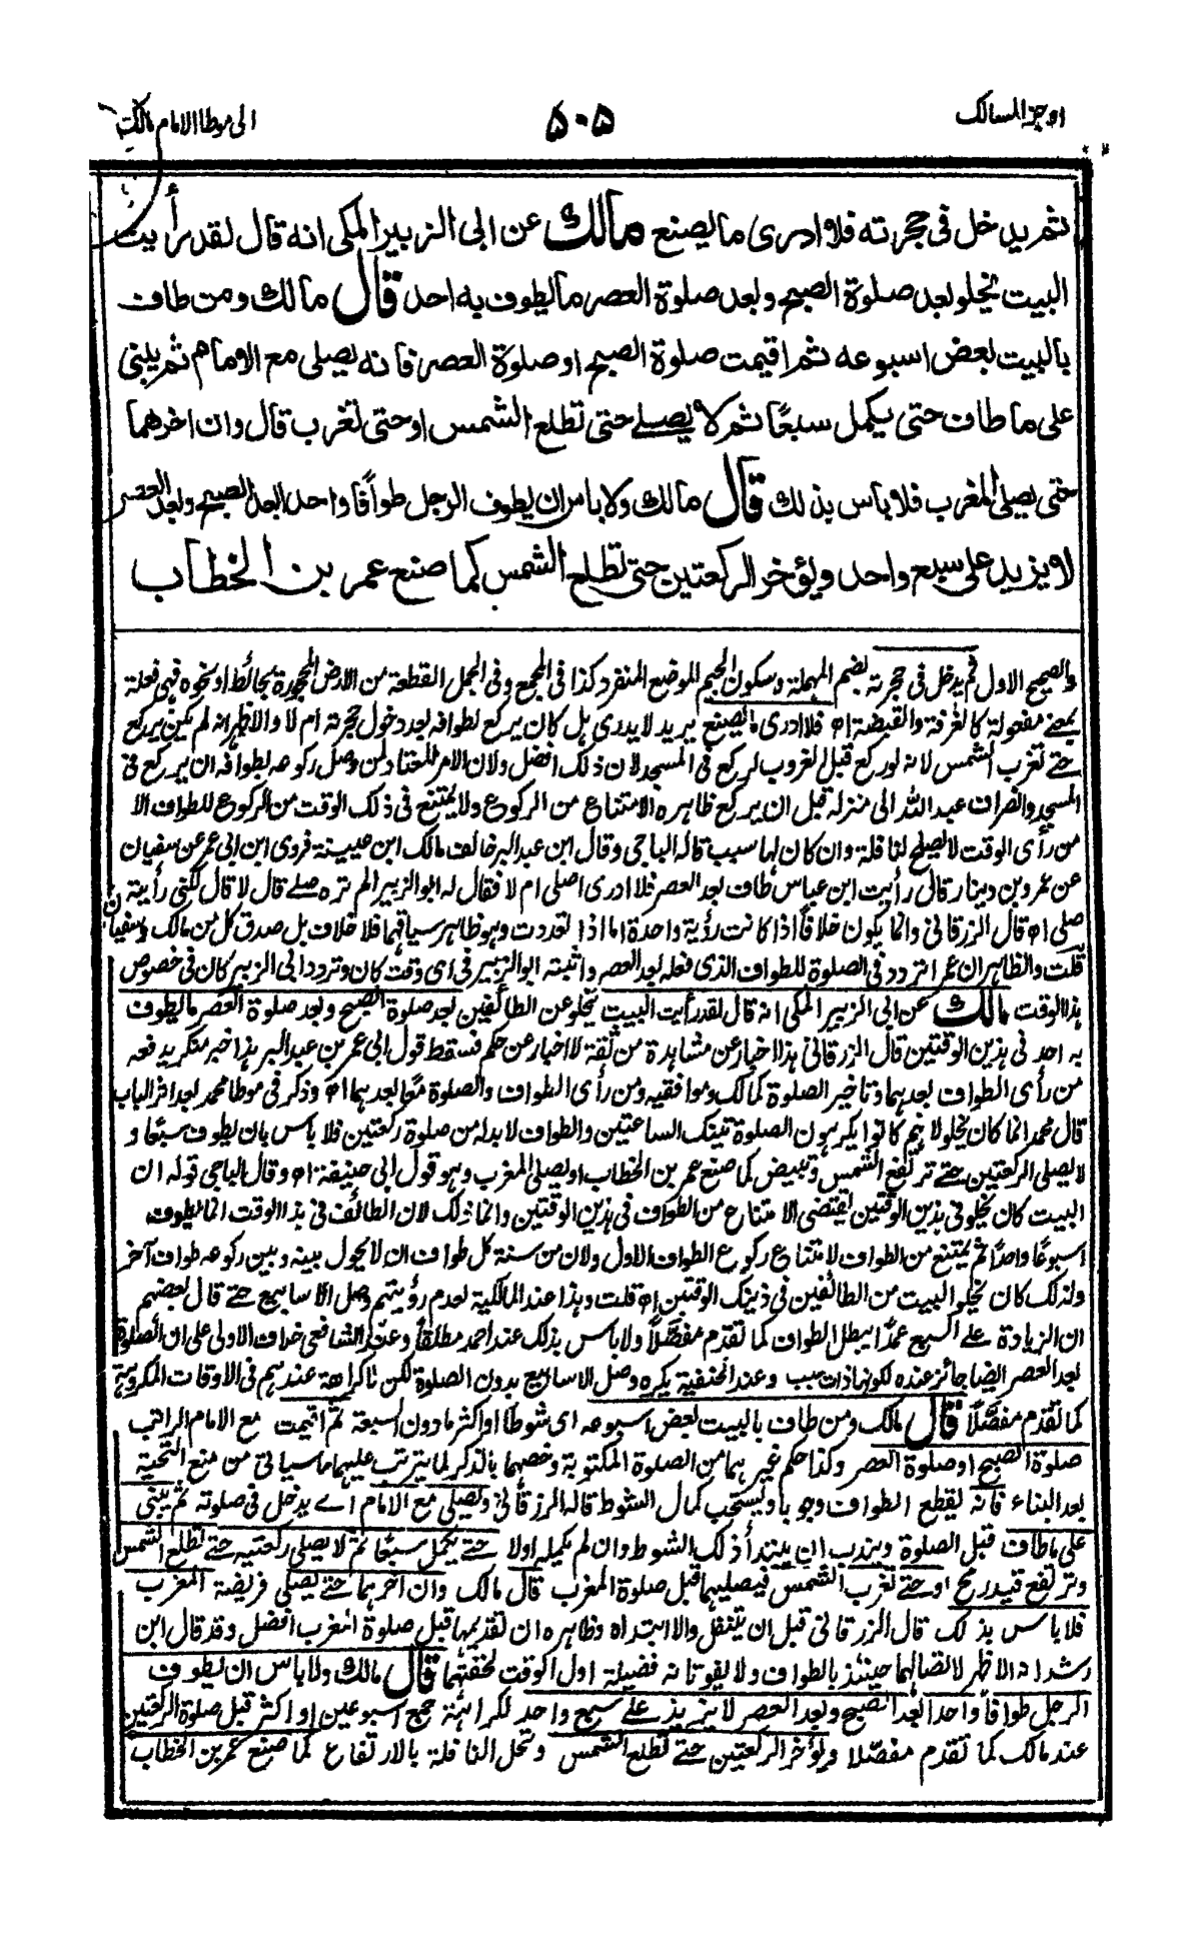 اوجز المسالك
٥٠٥
الى موطا الامام مالك
ثم يدخل فى حجرته فلا ادرى ما يصنع مالك عن ابى الزبير المكى انه قال لقد رأيت
البيت يخلو بعد صلوة الصبح وبعد صلوة العصر ما يطوف به احد قال مالك ومن طاف
بالبيت بعض اسبوعه ثم اقيمت صلوة الصبح او صلوة العصر فانه يصلى مع الامام ثم يبنى
على ما طاف حتى يكمل سبعًا ثم لا يصلے حتى تطلع الشمس او حتى تغرب قال وان اخرهما
حتى يصلى المغرب فلا باس بذلك قال مالك ولا باس ان يطوف الرجل طوافًا واحدا بعد الصبح وبعد العصر
لا يزيد على سبع واحد ويؤخر الركعتين حتى تطلع الشمس كما صنع عمر بن الخطاب
والصحيح الاول ثم يدخل فى حجرته بضم المهملة وسكون الجيم الموضع المنفرد كذا فى المجمع وفى الجمل القطعة من الارض المحجورة بحائط او نحوه فهى فعلة
بمعنے مفعولة كالغرفة والقبضة اه فلا ادرى ما يصنع يريد لا يدرى هل كان يركع لطوافه بعد دخول حجرته ام لا والاظهر انه لم يكن يركع
حتے تغرب الشمس لانه لو ركع قبل الغروب لركع فى المسجد لان ذلك افضل ولان الامر المعتاد لمن وصل ركوعه بطوافه ان يركع فى
المسجد وانصراف عبد الله الى منزله قبل ان يركع ظاهره الامتناع من الركوع ولا يمتنع فى ذلك الوقت من الركوع للطواف الا
من رأى الوقت لا يصلح لنافلة وان كان لها سبب قاله الباجى وقال ابن عبد البر خالف مالك ابن عيينة فروى ابن ابى عمر عن سفيان
عن عمرو بن دينار قال رأيت ابن عباس طاف بعد العصر فلا ادرى اصلى ام لا فقال له ابو الزبير الم تره صلے قال لا قال لكنى رأيته
صلى اه قال الزرقانى وانما يكون خلافًا اذا كانت رؤية واحدة اما اذا تعددت وهو ظاهر سياقهما فلا خلاف بل صدق كل من مالك وسفيان
قلت والظاهر ان عمرا تردد فى الصلوة للطواف الذى فعله بعد العصر واثبته ابو الزبير فى اى وقت كان وتردد ابى الزبير كان فى خصوص
هذا الوقت مالك عن ابى الزبير المكى انه قال لقد رأيت البيت يخلو عن الطائفين بعد صلوة الصبح وبعد صلوة العصر ما يطوف
به احد فى هذين الوقتين قال الزرقانى هذا اخبار عن مشاهدة من ثقة لا اخبار عن حكم فسقط قول ابى عمر بن عبد البر هذا خبر منكر يدفعه
من رأى الطواف بعدهما وتاخير الصلوة كمالك وموافقيه ومن رأى الطواف والصلوة معًا بعدهما اه وذكر فى موطا محمد بعد اثر الباب
قال محمد انما كان يخلو لانهم كانوا يكرهون الصلوة تينك الساعتين والطواف لا بد له من صلوة ركعتين فلا باس بان يطوف سبعًا و
لا يصلى الركعتين حتے ترتفع الشمس وتبيض كما صنع عمر بن الخطاب او يصلى المغرب وهو قول ابى حنيفة اه وقال الباجى قوله ان
البيت كان يخلو فى هذين الوقتين يقتضى الامتناع من الطواف فى هذين الوقتين وانما ذلك لان الطائف فى هذا الوقت انما يطوف
اسبوعًا واحدًا ثم يمتنع من الطواف لامتناع ركوع الطواف الاول ولان من سنة كل طواف ان لا يحول بينه وبين ركوعه طواف آخر
ولذلك كان يخلو البيت من الطائفين فى ذينك الوقتين اه قلت وهذا عند المالكية لعدم رؤيتهم وصل الاسابيع حتے قال بعضهم
ان الزيادة علے السبع عمدًا يبطل الطواف كما تقدم مفصّلًا ولا باس بذلك عند احمد مطلقًا وعند الشافعى خلاف الاولى على ان الصلوة
بعد العصر ايضا جائز عنده لكونها ذات سبب وعند الحنفية يكره وصل الاسابيع بدون الصلوة لكن لا كراهة عندهم فى الاوقات المكروهة
كما تقدم مفصّلًا قال مالك ومن طاف بالبيت بعض اسبوعه اى شوطًا او اكثر ما دون السبعة ثم اقيمت مع الامام الراتب
صلوة الصبح او صلوة العصر وكذا حكم غيرهما من الصلوة المكتوبة وخصهما بالذكر لما يترتب عليهما ما سياتى من منع التحية
بعد البناء فانه يقطع الطواف وجوبا ويستحب كمال الشوط قاله الزرقانى ويصلى مع الامام اے يدخل فى صلوته ثم يبنى
على ما طاف قبل الصلوة ويندب ان يبتدأ ذلك الشوط وان لم يكمله اولا حتے يكمل سبعًا ثم لا يصلى ركعتيه حتے تطلع الشمس
وترتفع قيد رمح او حتے تغرب الشمس فيصليهما قبل صلوة المغرب قال مالك وان اخرهما حتے يصلى فريضة المغرب
فلا باس بذلك قال الزرقانى قبل ان يتنفل والا ابتداه وظاهره ان تقديمهما قبل صلوة المغرب افضل وقد قال ابن
رشد انه الاظهر لاتصالهما حينئذ بالطواف ولا يفوتانه فضيلة اول الوقت لخفتهما قال مالك ولا باس ان يطوف
الرجل طوافًا واحدا بعد الصبح وبعد العصر لا يزيد علے سبع واحد لكراهة جمع اسبوعين او اكثر قبل صلوة الركعتين
عند مالك كما تقدم مفصّلا ويؤخر الركعتين حتے تطلع الشمس وتحل النافلة بالارتفاع كما صنع عمر بن الخطاب